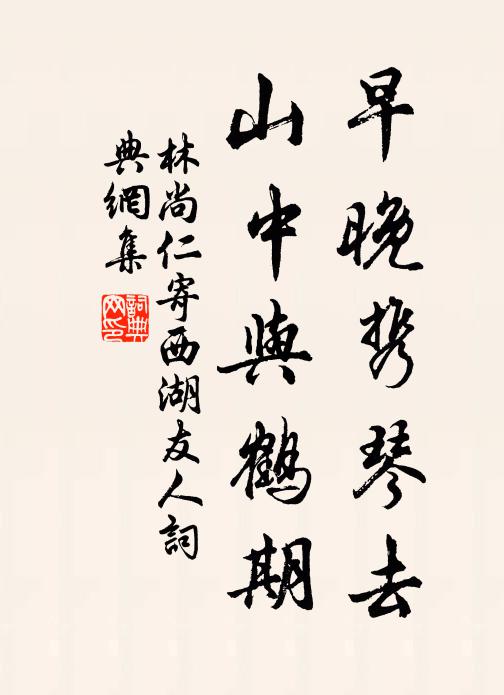 早晚携琴去
山中與鶴期
林尚仁寄西湖友人詞
典網集
詞典网印